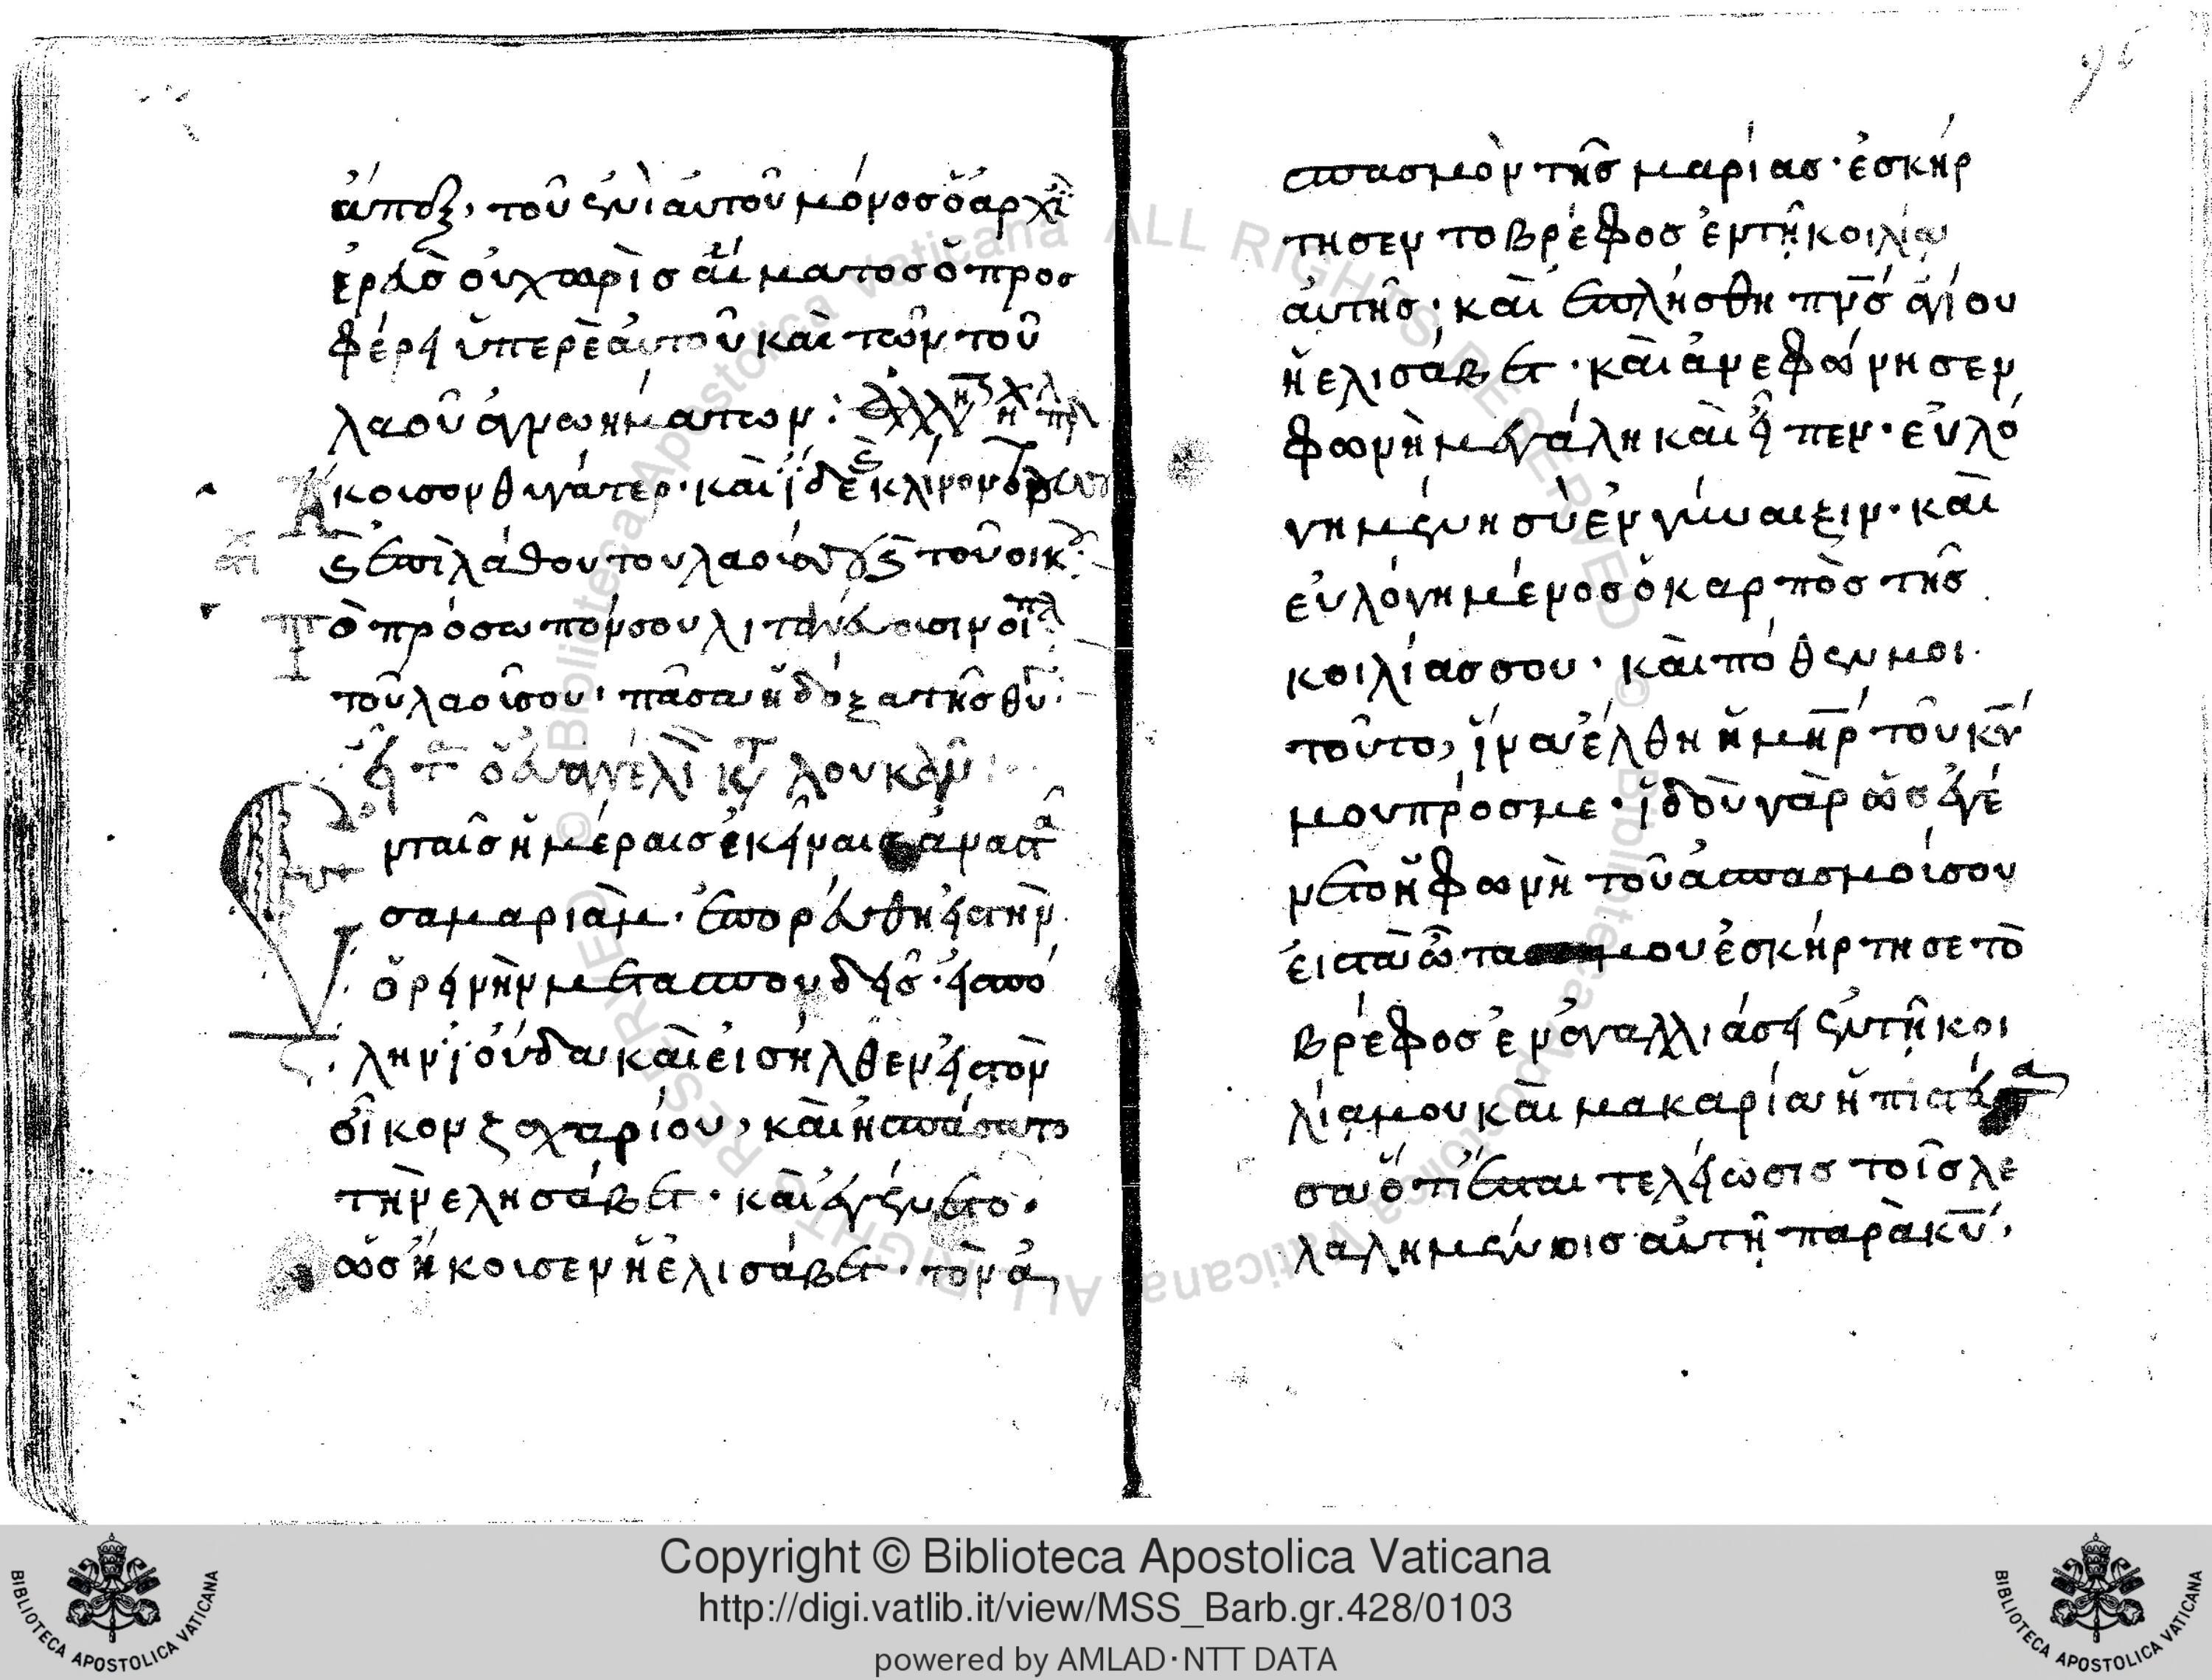 ἅπαξ· τοῦ ἐνιαυτοῦ μόνοσ ὁ ἀρχι
ερεὺσ οὐ χωρὶσ αἵματοσ ὁ προσ
φέρει ὑπερ ἐαυτοῦ καὶ τῶν τοῦ
λαοῦ ἀγνωημάτων:
Ἄκοισον θύγατερ· καὶ ἴδε κλίνον
ϛ ἐπιλάθου του λαοῦ ϛ τοῦ οικ
Τὸ πρόσωπόν σου λιτανεύσισιν οἱ πλ
τοῦ λαοῦ σου· πᾶσα ἡ δόξα τῆσ θυ
λουκὰν
ν ταῖσ ἡμέραισ ἐκείναισ ἀναστᾶ
σα μαριὰμ· ἐπορεύθη εἰσ τὴν
ὀρεινὴν μετα σπουδῆσ· εἰσ πό
λην ἰούδα καὶ εἰσῆλθεν εἰσ τὸν
οἶκον ζαχαρίου, καὶ ἠσπάσατο
τὴν ελησάβετ· καὶ ἐγένετο·
ὡσ ἤκοισεν ἡ ἐλισάβετ· τὸν ἀ
σπασμὸν τῆσ μαρίασ· ἐσκήρ
τησεν το βρέφοσ ἐν τῆ κοιλία
αυτῆσ· καὶ ἐπλήσθη πνσ ἁγίου
ἡ ελισάβετ· καὶ ἀνεφώνησεν
φωνὴ μεγάλη καὶ εἶπεν· εὐλο
γημένη σὺ ἐν γυναιξιν· καὶ
εὐλόγημένοσ ὁ καρπὸσ τῆσ
κοιλίασ σου· καὶ πόθεν μοι
τοῦτο, ἵνα ἔλθη ἡ μηρ τοῦ κυ
μου πρόσ με· ἰδοὺ γὰρ ὡσ ἐγέ
νετο ἡ φωνὴ τοῦ ἀσπασμοῦ σου
εἰσ τὰ ὦτα μου ἐσκήρτησε τὸ
βρέφοσ ἐν ἀγαλλιάσει ἐν τῆ κοι
λία μου καὶ μακαρία ἡ πιστεύ
σασα ὅτι ἔσται τελείωσισ τοῖσ λε
λαλημένοισ αὐτῆ παρὰ κυ·
Copyright © Biblioteca Apostolica Vaticana
http://digi.vatlib.it/view/MSS_Barb.gr.428/0103
powered by AMLAD·NTT DATA